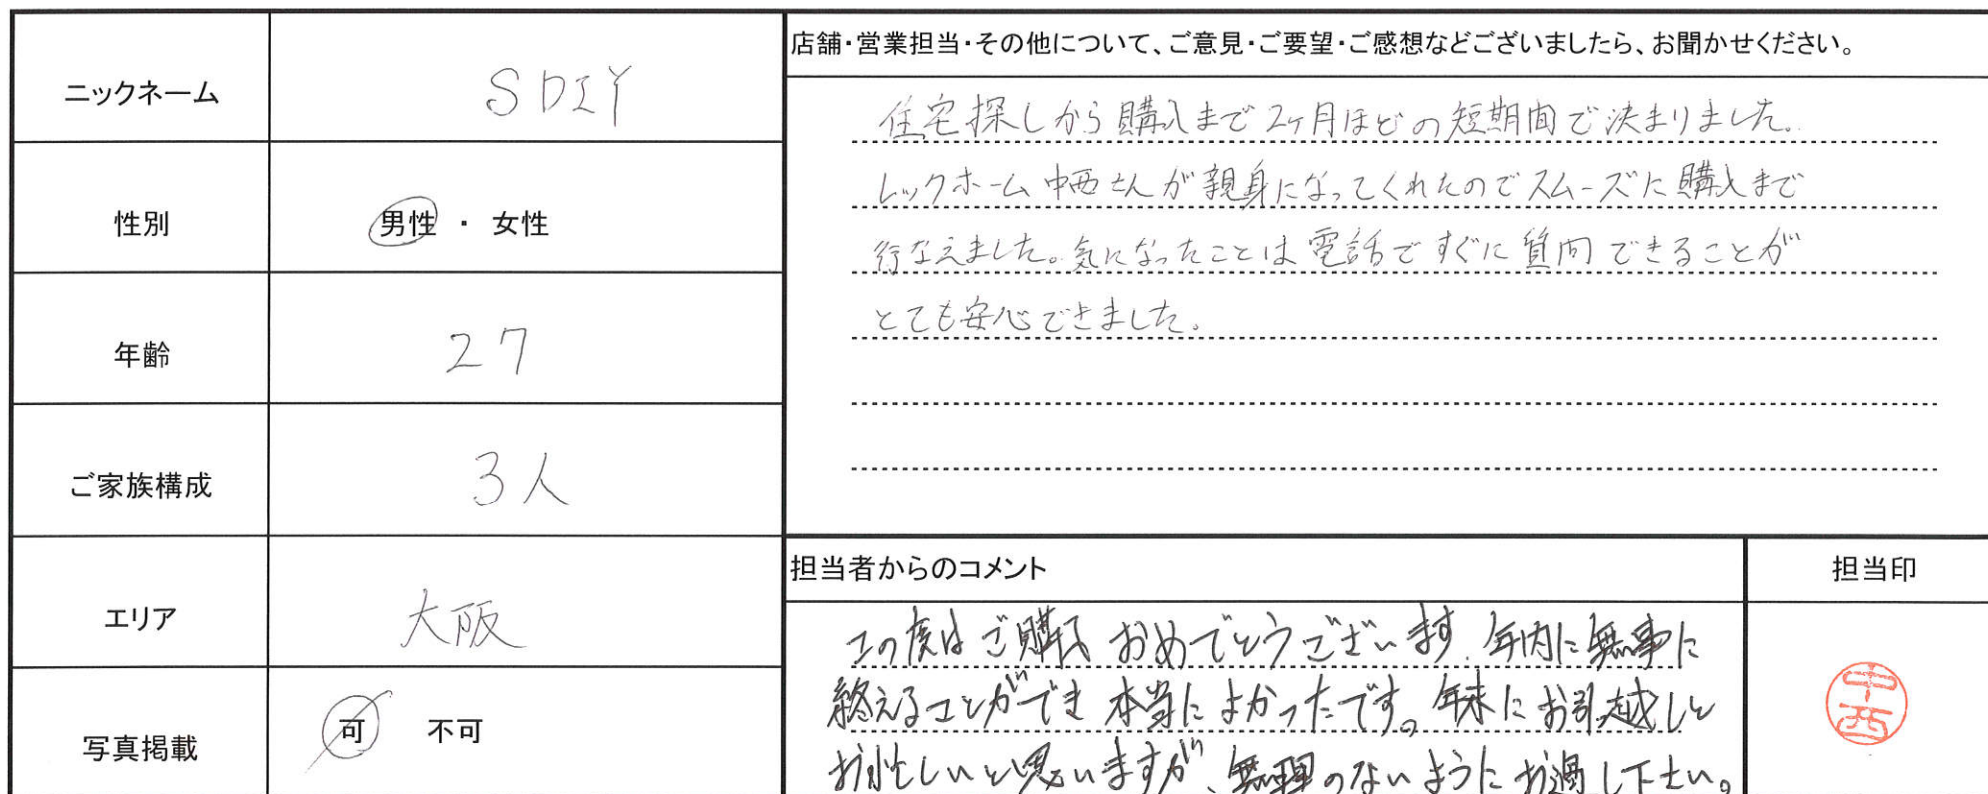 ニックネーム
SDIY
性別
男性 ・ 女性
年齢
27
ご家族構成
3人
エリア
大阪
写真掲載
可 不可
店舗・営業担当・その他について、ご意見・ご要望・ご感想などございましたら、お聞かせください。
住宅探しから購入まで2ヶ月ほどの短期間で決まりました。
レックホーム中西さんが親身になってくれたのでスムーズに購入まで
行なえました。気になったことは電話ですぐに質問できることが
とても安心できました。
担当者からのコメント
この度はご購入おめでとうございます。年内に無事に
終えることができ本当によかったです。年末にお引越しと
お忙しいと思いますが、無理のないようにお過し下さい。
担当印
中西